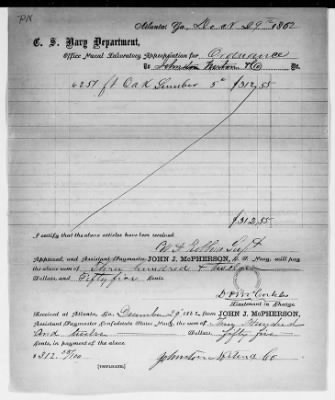 PN
Atlanta, Ga, Decr 29th 1862
C. S. Navy Department,
Office Naval Laboratory Appropriation for Ordnance
To Johnston Newton & Co Dr.
6251 ft Oak Lumber 5c $312,55
$312,55
I certify that the above articles have been received.
Supt
Approved, and Assistant Paymaster JOHN J. McPHERSON, C. S. Navy, will pay
the above sum of Three hundred & twelve
Dollars, and Fifty five Cents.
Lieutenant in Charge
Received at Atlanta, Ga. December 29" 1862, from JOHN J. McPHERSON,
Assistant Paymaster Confederate States Navy, the sum of Three Hundred
and twelve Dollars, fifty five
Cents, in payment of the above
$312 55/100
Johnston Newton & Co
(TRIPLICATE)